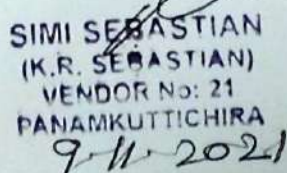 SIMI SEBASTIAN
(K.R. SEBASTIAN)
VENDOR No: 21
PANAMKUTTICHIRA
9-11-2021